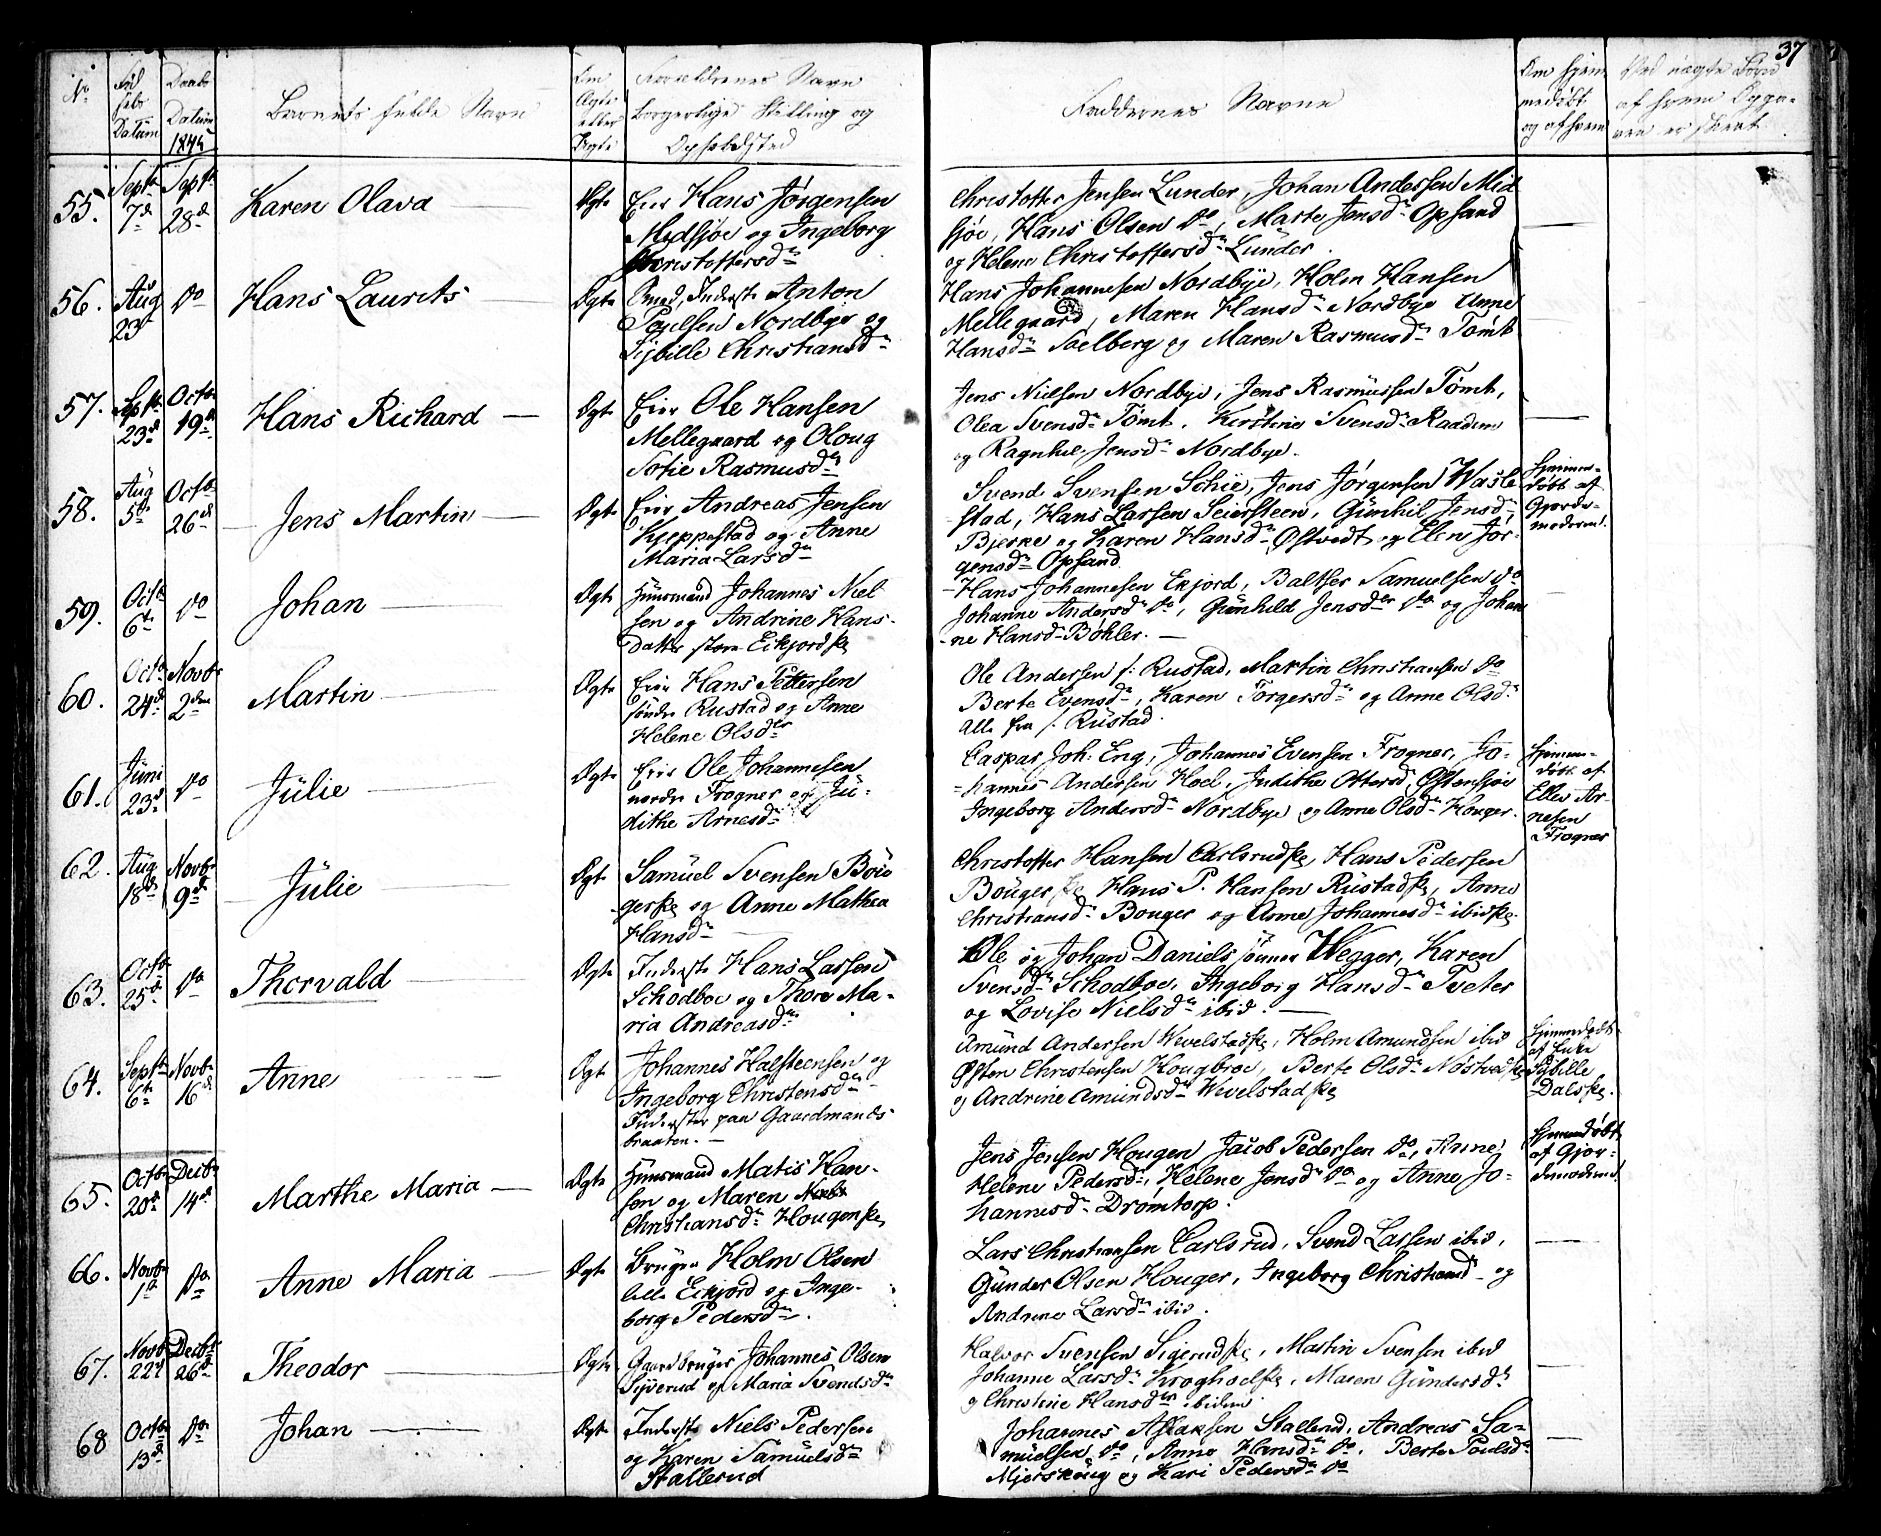 37
No
Fød
sels
Datum
Daabs
Datum
1845
Barnets fulde Navn
Om
Ægte
eller
Uægte
Forældrenes Navn
borgerlige Stilling og
Opholdsted
Faddernes Navne
Om hjem
medøbt
og af hvem
Ved uægte Børn
af hvem Opga-
ven er skeet
55.
Septr
7de
Septr
28de
Karen Olava
Ægte
Eier Hans Jørgensen
Midsjøe og Ingeborg
Christoffersdr
Christoffer Jensen Lunder, Johan Andersen Mid
sjøe, Hans Olsen do, Marte Jensdr Opsand
og Helene Christoffersdr Lunder.
56.
Aug
23
do
Hans Laurits
Ægte
Smed, Inderste Anton
Poulsen Nordbye og
Sybille Christiansdr
Hans Johannesen Nordbye, Holm Hansen
Mellegaard, Maren Hansdr Nordbye Anne
Hansdr Solberg og Maren Rasmusdr Tomt
57.
Septr
23de
Octbr
19de
Hans Richard
Ægte
Eier Ole Hansen
Mellegaard og Oloug
Sofie Rasmusdr
Jens Nielsen Nordbye, Jens Rasmussen Tomt,
Olea Svensdr Tomt, Kirstine Svensdr Raaden
og Ragnhil Jensdr Nordbye.
58.
Aug
5te
Octbr
26de
Jens Martin
Ægte
Eier Andreas Jensen
Kjeppestad og Anne
Maria Larsdr
Svend Svensen Schie, Jens Jørgensen Wasle
stad, Hans Larsen Seiersteen, Gunhil Jensdr
Bjerke og Karen Hansdr Østvedt og Elen Jør-
gensdr Opsand
Hjemme-
døbt af
Gjorde-
moderen.
59.
Octbr
6te
do
Johan
Ægte
Huusmand Johannes Niel
sen og Andrine Hans-
datter store Eikjordske
Hans Johannesen Ekjord, Baltser Samuelsen do
Johanne Andersdr do, Gunhild Jensdr do og Johan
ne Hansdr Bøhler.
60.
Octbr
24de
Novbr
2den
Martin
Ægte
Eier Hans Pettersen
søndre Rustad og Anne
Helene Olsdr
Ole Andersen s: Rustad, Martin Christiansen do
Berte Evensdr, Karen Torgersdr og Anne Olsdr
alle fra s: Rustad.
61.
Juni
23de
do
Julie
Ægte
Eier Ole Johannesen
nordre Frogner og Ju-
dithe Arnesdr
Caspar Joh: Eng, Johannes Evensen Frogner, Jo-
hannes Andersen Hoel, Judithe Ottersd. Østensjøe
Ingeborg Andersdr Nordbye og Anne Olsdr Houger.
Hjemme-
døbt af
Elles Ar-
nesen
Frogner
62.
Aug
18de
Novbr
9de
Julie
Ægte
Samuel Svensen Bou
gerske og Anne Mathea
Hansdr
Christoffer Hansen Carlsrudske, Hans Pedersen
Bougerske Hans P. Hansen Rustadske, Anne
Christiansdr Bouger og Anne Johannesdr ibidske.
63.
Octbr
25de
do
Thorvald
Ægte
Inderste Hans Larsen
Schodboe og Thore Ma-
ria Andreasdr
Ole og Johan Danielssønner Wegger, Karen
Svensdr Schodboe, Ingeborg Hansdr Tveter
og Lovise Nielsdr ibid.
64.
Septr
6te
Novbr
16de
Anne
Ægte
Johannes Halsteensen og
Ingeborg Christensdr
Inderster paa Gaardmands-
braaten.
Amund Andersen Wevelstadske, Holm Amundsen ibid
Østen Christensen Hougbroe, Berte Olsdr Nøstvedske
og Andrine Amundsdr Wevelstadske
Hjemmedøbt
af Enke
Sybille
Dalske.
65.
Octbr
20de
Decbr
14de
Marthe Maria
Ægte
Huusmand Matis Han-
sen og Maren
Christiansdr Hougenske
Jens Jensen Hougen Jacob Pedersen do, Anne
Helene Pedersdr, Helene Jensdr do og Anne Jo-
hannesdr Drømtorp.
Hjemmedøbt
af Gjor-
demoderen
66.
Novbr
1ste
do
Anne Maria
Ægte
Bruger Holm Olsen
lille Eikjord og Inge-
borg Pedersdr.
Lars Christiansen Carlsrud, Svend Larsen ibid,
Gunder Olsen Houger, Ingeborg Christiansd og
Andrine Larsdr ibid.
67.
Novb
22de
Decbr
26de
Theodor
Ægte
Gaardbruger Johannes Olsen
Syverud og Maria Svendsdr
Halvor Svensen Sigerudske, Martin Svensen ibid
Johanne Larsdr Kroghoelske, Maren Gundersdr
og Christine Hansdr ibidem
68
Octbr
13de
do
Johan
Ægte
Inderste Niels Pedersen
og Karen Samuelsdr
Stallerud
Johannes Aslaksen Stallerud, Andreas Sa-
muelsen do, Anne Hansdr do, Berte Poulsdr
Mjerskoug og Kari Pedersdr do